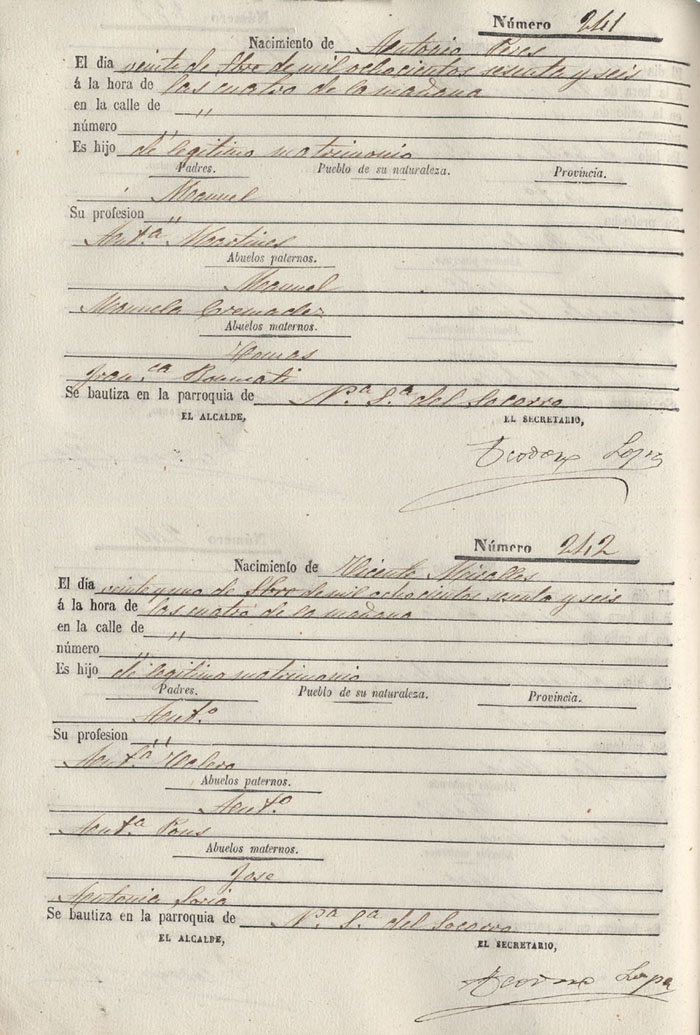 Número 241
Nacimiento de Antonio Peres
El dia veinte de 8bre de mil ochocientos sesenta y seis
á la hora de las cuatro de la mañana
en la calle de "
número "
Es hijo de legitimo matrimonio
Padres. Pueblo de su naturaleza. Provincia.
Manuel
Su profesion "
Antª Martines
Abuelos paternos.
Manuel
Manuela Cremades
Abuelos maternos.
Tomas
Franca
Se bautiza en la parroquia de Nª Sª del Socorro
EL ALCALDE, EL SECRETARIO,
Teodoro Lopez
Número 242
Nacimiento de Vicente Miralles
El dia veinte y uno de 8bre de mil ochocientos sesenta y seis
á la hora de las cuatro de la mañana
en la calle de "
número "
Es hijo de legitimo matrimonio
Padres. Pueblo de su naturaleza. Provincia.
Antº
Su profesion "
Antª Valero
Abuelos paternos.
Antº
Antª Pons
Abuelos maternos.
Jose
Antonia Soria
Se bautiza en la parroquia de Nª Sª del Socorro
EL ALCALDE, EL SECRETARIO,
Teodoro Lopez